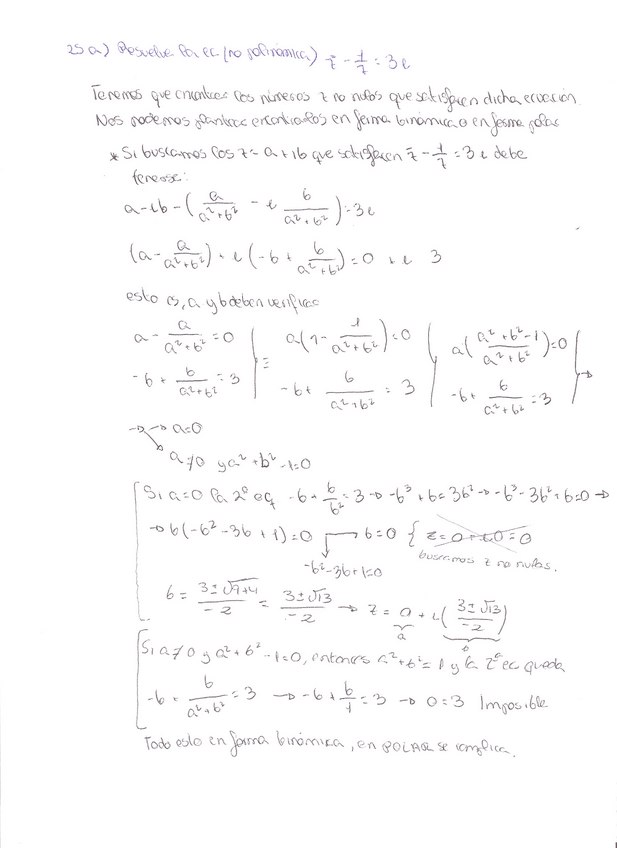 25 a) Resuelve la ec. (no polinómica) z̄ - 1/z = 3i
Tenemos que encontrar los números z no nulos que satisfacen dicha ecuación.
Nos podemos plantear encontrarlos en forma binómica o en forma polar
* Si buscamos los z = a + ib que satisfacen z̄ - 1/z = 3i debe
tenerse:
a - ib - (a/(a²+b²) - i b/(a²+b²)) = 3i
(a - a/(a²+b²)) + i (-b + b/(a²+b²)) = 0 + i 3
esto es, a y b deben verificar
a - a/(a²+b²) = 0 } = a(1 - 1/(a²+b²)) = 0 } a((a²+b²-1)/(a²+b²)) = 0 } →
-b + b/(a²+b²) = 3 } -b + b/(a²+b²) = 3 } -b + b/(a²+b²) = 3 }
→ → a=0
a≠0 y a²+b²-1=0
Si a=0 la 2ª eq -b + b/b² = 3 → -b³ + b = 3b² → -b³ - 3b² + b = 0 →
→ b(-b² - 3b + 1) = 0 → b=0 { z = 0 + i0 = 0
buscamos z no nulos.
-b² - 3b + 1 = 0
b = (3 ± √(9+4))/(-2) = (3 ± √13)/(-2) → z = 0 + i((3 ± √13)/(-2))
a b
Si a≠0 y a²+b²-1=0, entonces a²+b²=1 y la 2ª ec queda
-b + b/(a²+b²) = 3 → -b + b/1 = 3 → 0=3 Imposible
Todo esto en forma binómica, en POLAR se complica.